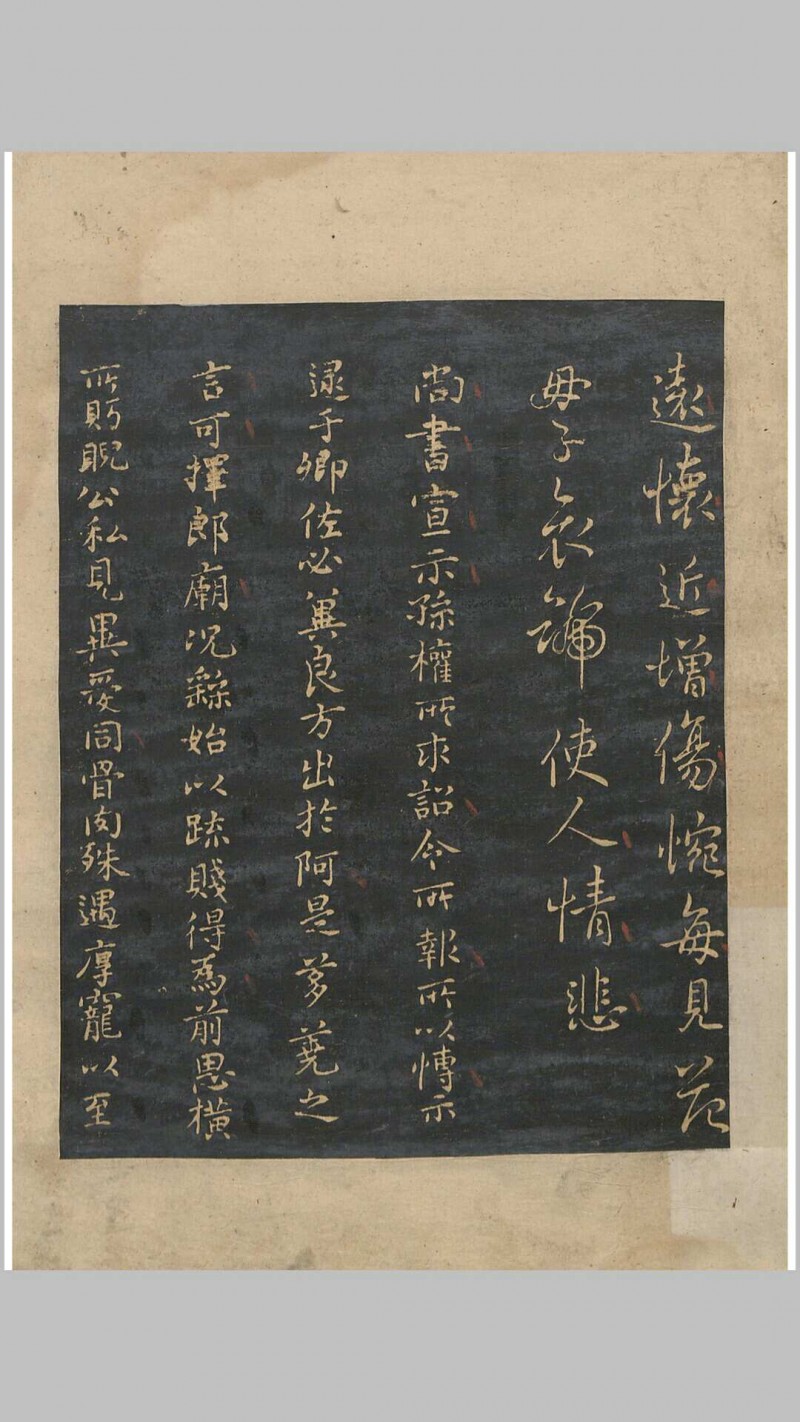 遠懷近增傷惋每見范
母子哀號使人情悲
尚書宣示孫權所求詔令所報所以博示
逮于卿佐必冀良方出於阿是芻蕘之
言可擇郎廟況繇始以疏賤得為前恩橫
所眄睨公私見異愛同骨肉殊遇厚寵以至